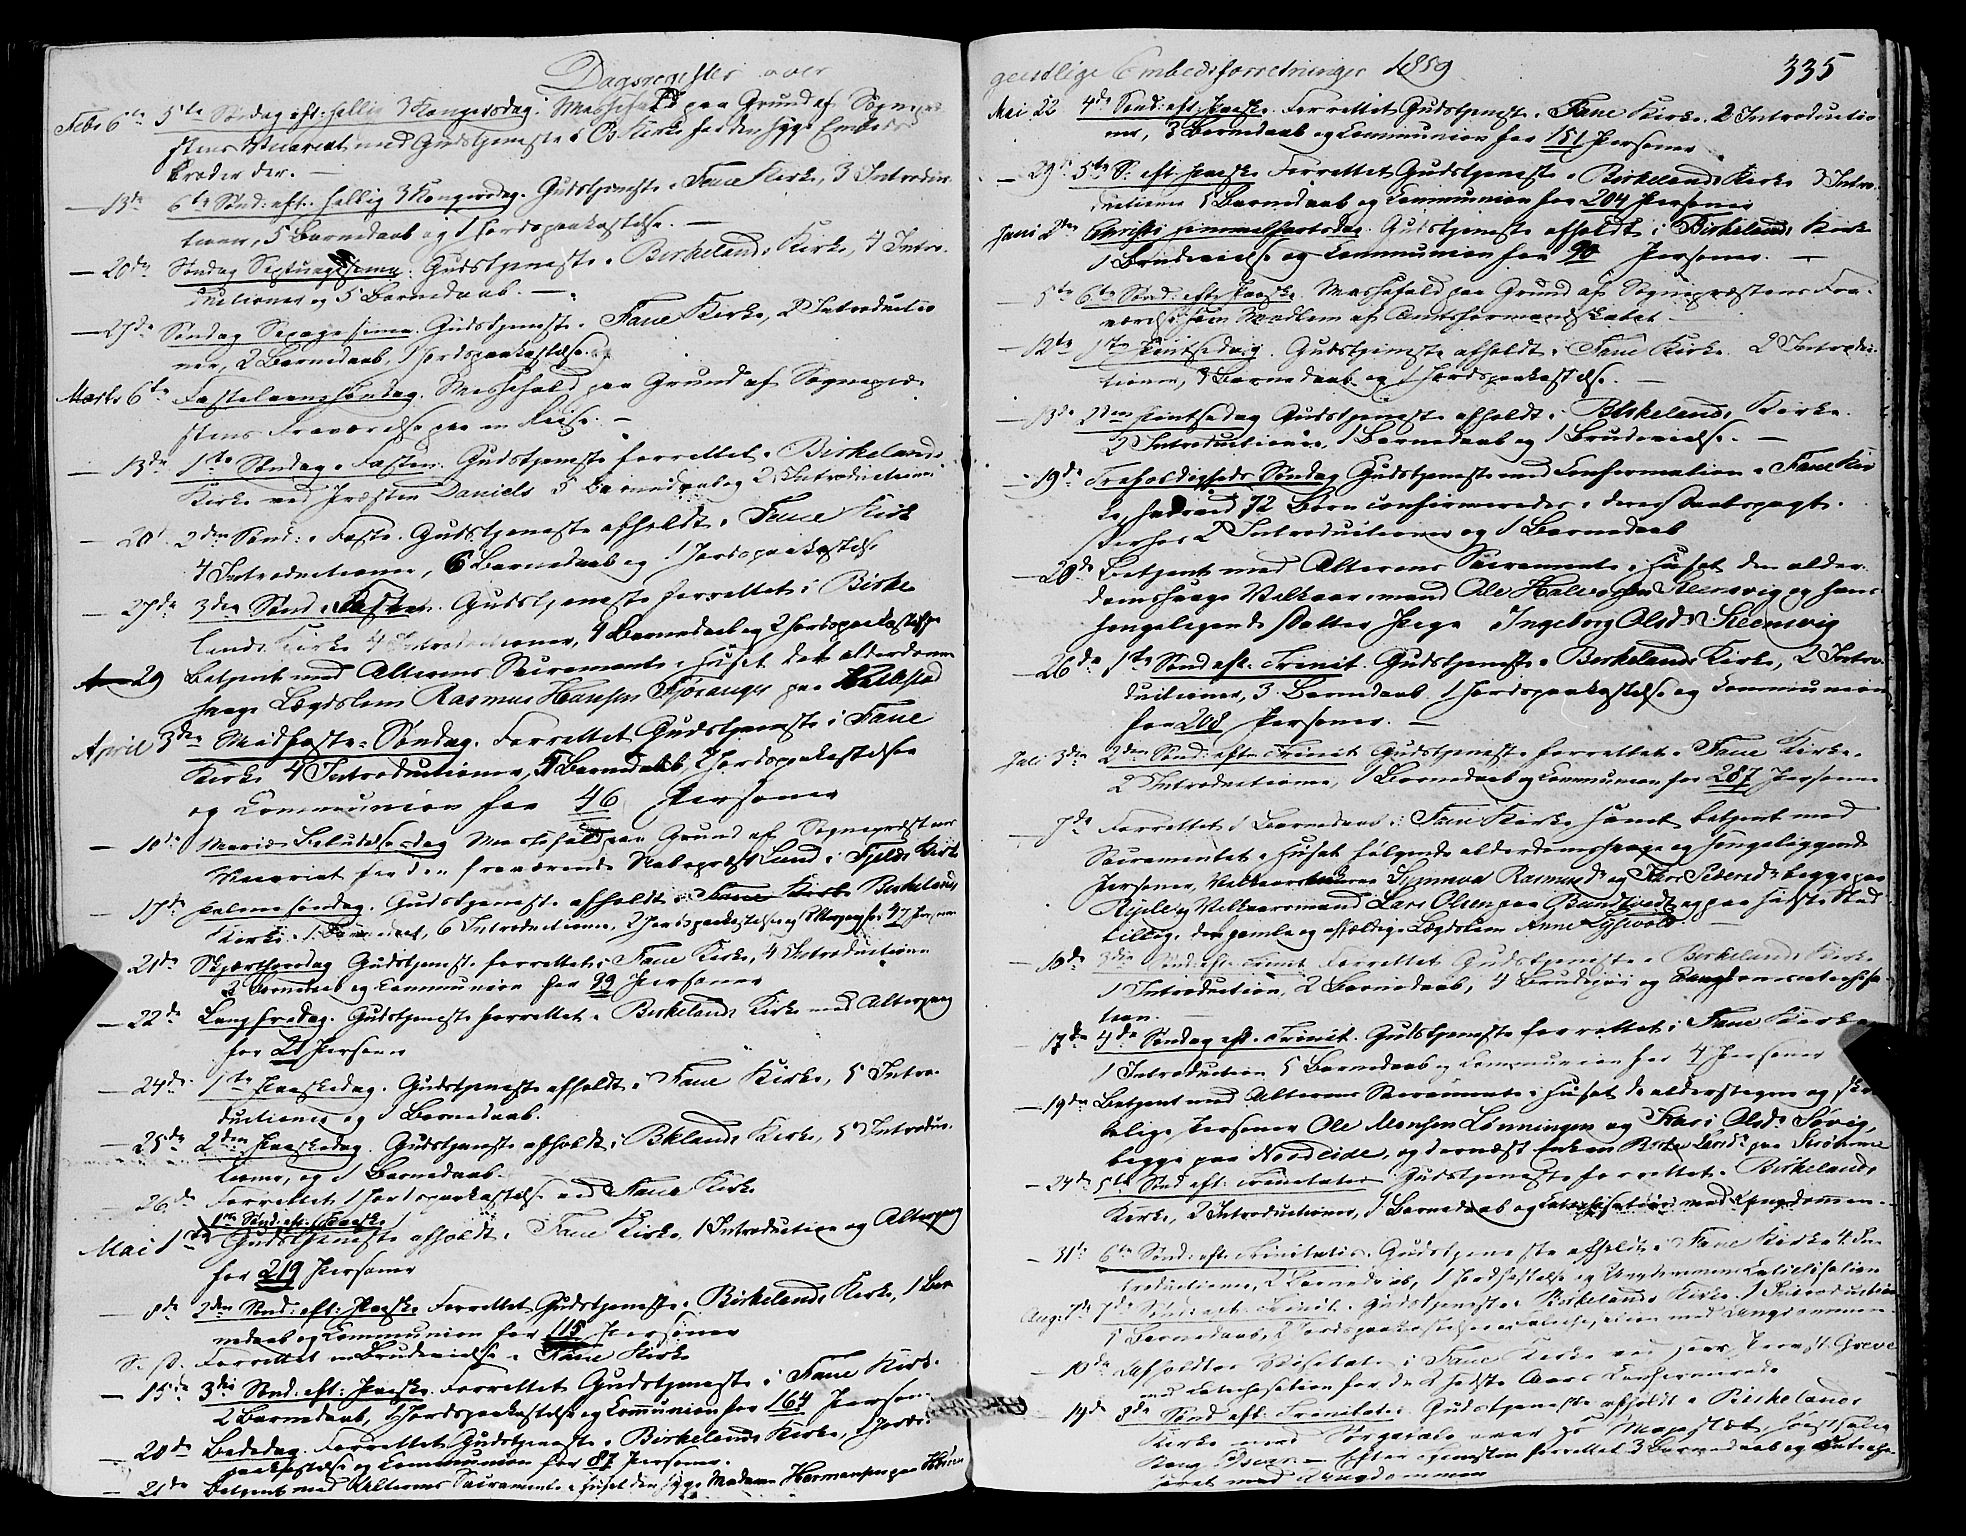 Dagsregister over
Febr 6te 5te Søndag eft: hellig 3 Kongersdag. Messefald paa Grund af Sognepræ
stens Vicariat med Gudstjeneste i Os Kirke for den syge Embeds
broder der. —
— 13de 6te Sønd: eft: hellig 3 Kongersdag. Gudstjeneste i Fane Kirke, 3 Introduc
tioner, 5 Barnedaab og 1 Jordspaakastelse. —
— 20de Søndag Septuagesima. Gudstjeneste i Birkelands Kirke, 4 Intro
ductioner og 5 Barnedaab. —
— 27de Søndag Sexagesima. Gudstjeneste i Fane Kirke, 2 Introductio
ner, 2 Barnedaab, 1 Jordspaakastelse.
Marts 6te Fastelavnssøndag. Messefald paa Grund af Sognepræ
stens Fraværelse paa en Reise. —
— 13de 1ste Søndag i Fasten. Gudstjeneste forrettet i Birkelands
Kirke ved Præsten Daniels 5 Barnedaab og 2 Introductioner
— 20de 2den Sønd: i Faste. Gudstjeneste afholdt i Fane Kirke
4 Introductioner, 6 Barnedaab og 1 Jordspaakastelse
— 27de 3den Sønd: i Fasten. Gudstjeneste forrettet i Birke
lands Kirke 4 Introductioner, 4 Barnedaab og 2 Jordspaakastelse
29 Betjent med Alterens Sacramente i Huset det alderdoms
svage Lægdslem Rasmus Hansen Fjøsanger paa
April 3die Midfaste-Søndag. Forrettet Gudstjeneste i Fane
Kirke 4 Introductioner, 5 Barnedaab, 2 Jordspaakastelser
og Communion for 46 Personer
— 10de Mariæ Bebudelsesdag Messefald paa Grund af Sognepræstens
Vicariat for den fraværende Nabopræst Lund i Fjelds Kirke
— 17de Palmesøndag. Gudstjeneste afholdt i Fane Kirke Birkelands
Kirke. 1 Barnedaab, 6 Introductioner, 2 Jordspaakastelse og Altergang for 47 Personer
— 21de Skjærthorsdag Gudstjeneste forrettet i Fane Kirke, 4 Introductioner
2 Barnedaab og Communion for 99 Personer
— 22de Langfredag. Gudstjeneste forrettet i Birkelands Kirke med Altergang
for 21 Personer
— 24de 1ste Paaskedag. Gudstjeneste afholdt i Fane Kirke, 5 Intro-
ductioner og 1 Barnedaab.
— 25de 2den Paaskedag. Gudstjeneste afholdt i Birkelands Kirke, 5 Introduc
tioner, og 1 Barnedaab.
— 26de Forrettet 1 Jordspaakastelse ved Fane Kirke
1ste Sønd: eft: Paaske
Mai 1ste Gudstjeneste afholdt i Fane Kirke, 1 Introduction og Altergang
for 219 Personer
— 8de 2den Sønd: eft: Paaske Forrettet Gudstjeneste i Birkelands Kirke, 1 Bar
nedaab og Communion for 115 Personer
S. D. Forrettet en Brudevielse i Fane Kirke
— 15de 3die Sønd: eft: Paaske. Forrettet Gudstjeneste i Fane Kirke.
2 Barnedaab, 1 Jordspaakastelse og Communion for 164 Personer
— 20de Bededag. Forrettet Gudstjeneste i Birkelands Kirke, 1 Jords
paakastelse og Communion for 87 Personer.
— 21de Betjent med Alterens Sacramente i Huset den syge Madam Hermansen paa
geistlige Embedsforretninger 1859. 335
Mai 22 4de Sønd: eft: Paaske. Forrettet Gudstjeneste i Fane Kirke. 2 Introductio
ner, 3 Barnedaab og Communion for 151 Personer
— 29de 5te S: eft Paaske Forrettet Gudstjeneste i Birkelands Kirke 3 Intro-
ductioner 5 Barnedaab og Communion for 204 Personer
Juni 2den Christi Himmelfartsdag. Gudstjeneste afholdt i Birkelands Kirke
1 Brudevielse og Communion for 90 Personer. —
— 5te 6te Sønd: efter Paaske. Messefald paa Grund af Sognepræstens Fra-
værelse som Medlem af Amtsformandskabet
— 12te 1ste Pintsedag. Gudstjeneste afholdt i Fane Kirke. 2 Introduc-
tioner, 3 Barnedaab og 1 Jordspaakastelse. —
— 13de 2den Pintsedag Gudstjeneste afholdt i Birkelands Kirke.
2 Introductioner, 1 Barnedaab og 1 Brudevielse. —
— 19de Trefoldigheds Søndag Gudstjeneste med Confirmation i Fane Kir
ke, hvorved 72 Børn confirmeredes i deres Daabspagt.
Derhos 2 Introductioner og 1 Barnedaab
— 20de Betjent med Alterens Sacramente i Huset den alder
domssvage Velkaarsmand Ole Halvorsen og hans
sengeliggende Datter Pige Ingeborg Olsdr.
— 26de 1ste Sønd eft. Trinit. Gudstjeneste i Birkelands Kirke, 2 Intro-
ductioner, 3 Barnedaab, 1 Jordspaakastelse og Communion
for 208 Personer. —
Juli 3die 2den Sønd: efter Trinit. Gudstjeneste forrettet i Fane Kirke.
2 Introductioner, 1 Barnedaab og Communion for 287 Personer
— 7de Forrettet 1 Barnedaab i Fane Kirke samt betjent med
Sacramentet i Huset følgende alderdomssvage og sengeliggende
Personer, Synneva Rasmusdr og Pedersdr begge paa
og Velkaarsmand Lars Olsen paa og paa sidste Sted
tillige den gamle og affældige Lægdslem Anne
— 10de 3die Sønd: eft: Trinit. Forrettet Gudstjeneste i Birkelands Kirke
1 Introduction, 2 Barnedaab, 4 og Ungdomscatechisa
tion.
— 17de 4de Søndag eft. Trinit. Gudstjeneste forrettet i Fane Kirke
1 Introduction 5 Barnedaab og Communion for 4 Personer
— 19de Betjent med Alterens Sacramente i Huset de alderstegne og
Personer Ole Monsen Lønningen og Kari Olsdr Søvig,
begge paa Nordeide, og dernæst Enken
— 24de 5te Sønd eft: Trinitatis Gudstjeneste forrettet i Birkelands
Kirke, 2 Introductioner, 1 Barnedaab og Catechisation med Ungdommen.
— 31te 6te Sønd: eft: Trinitatis. Gudstjeneste afholdt i Fane Kirke 4 In-
troductioner, 2 Barnedaab, 1 og Ungdommens Catechisation
Aug: 7de 7de Sønd: eft: Trinit. Gudstjeneste i Birkelands Kirke. 1 Introduction
1 Barnedaab, 2 Jordspaakastelser med Ungdommen
— 10de Afholdtes Visitats i Fane Kirke ved Herr Provst Greve
med Catechisation for de 2 sidste Aars Confirmerede
— 14de 8de Sønd eft: Trinitatis. Gudstjeneste afholdt i Birkelands
Kirke med Sørgetale over Hs Majestæt høistsalig
Kong Oscar. — Efter Tjenesten forrettet 3 Barnedaab og Catechi
seret med Ungdommen